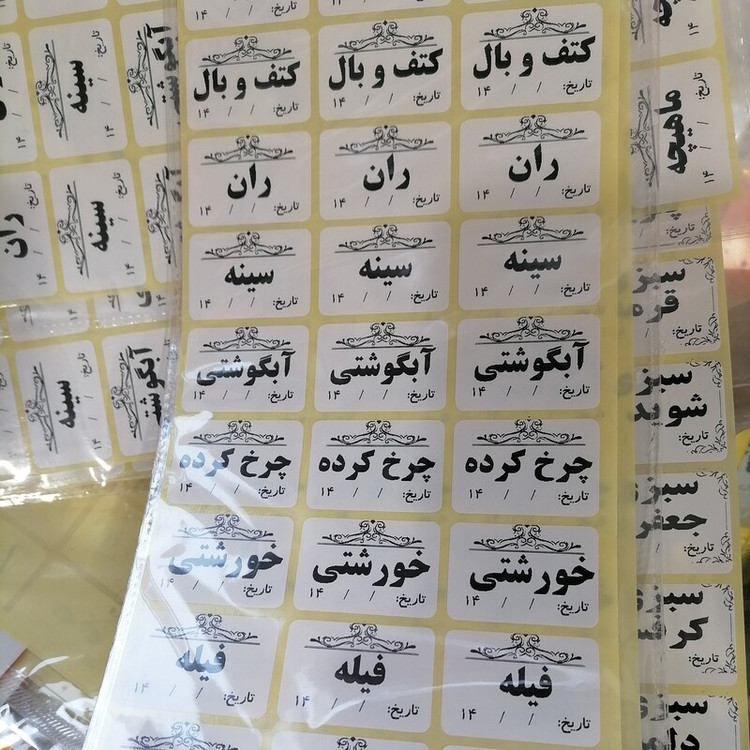 تاریخ: / / ۱۴
تاریخ: / / ۱۴
کتف و بال
تاریخ: / / ۱۴
کتف و بال
تاریخ: / / ۱۴
کتف و بال
تاریخ: / / ۱۴
ران
تاریخ: / / ۱۴
ران
تاریخ: / / ۱۴
ران
تاریخ: / / ۱۴
سینه
تاریخ: / / ۱۴
سینه
تاریخ: / / ۱۴
سینه
تاریخ: / / ۱۴
آبگوشتی
تاریخ: / / ۱۴
آبگوشتی
تاریخ: / / ۱۴
آبگوشتی
تاریخ: / / ۱۴
چرخ کرده
تاریخ: / / ۱۴
چرخ کرده
تاریخ: / / ۱۴
چرخ کرده
تاریخ: / / ۱۴
خورشتی
تاریخ: / / ۱۴
خورشتی
تاریخ: / / ۱۴
خورشتی
تاریخ: / / ۱۴
فیله
تاریخ: / / ۱۴
فیله
تاریخ: / / ۱۴
فیله
تاریخ: / / ۱۴
ماهیچه
تاریخ: / / ۱۴
سبزی
تاریخ:
سبزی
شوید
تاریخ:
سبزی
تاریخ:
سبزی
تاریخ:
سبزی
سینه
تاریخ: / / ۱۴
آبگوشتی
ران
تاریخ:
سینه
تاریخ: / / ۱۴
سینه
تاریخ: / / ۱۴
آبگوشتی